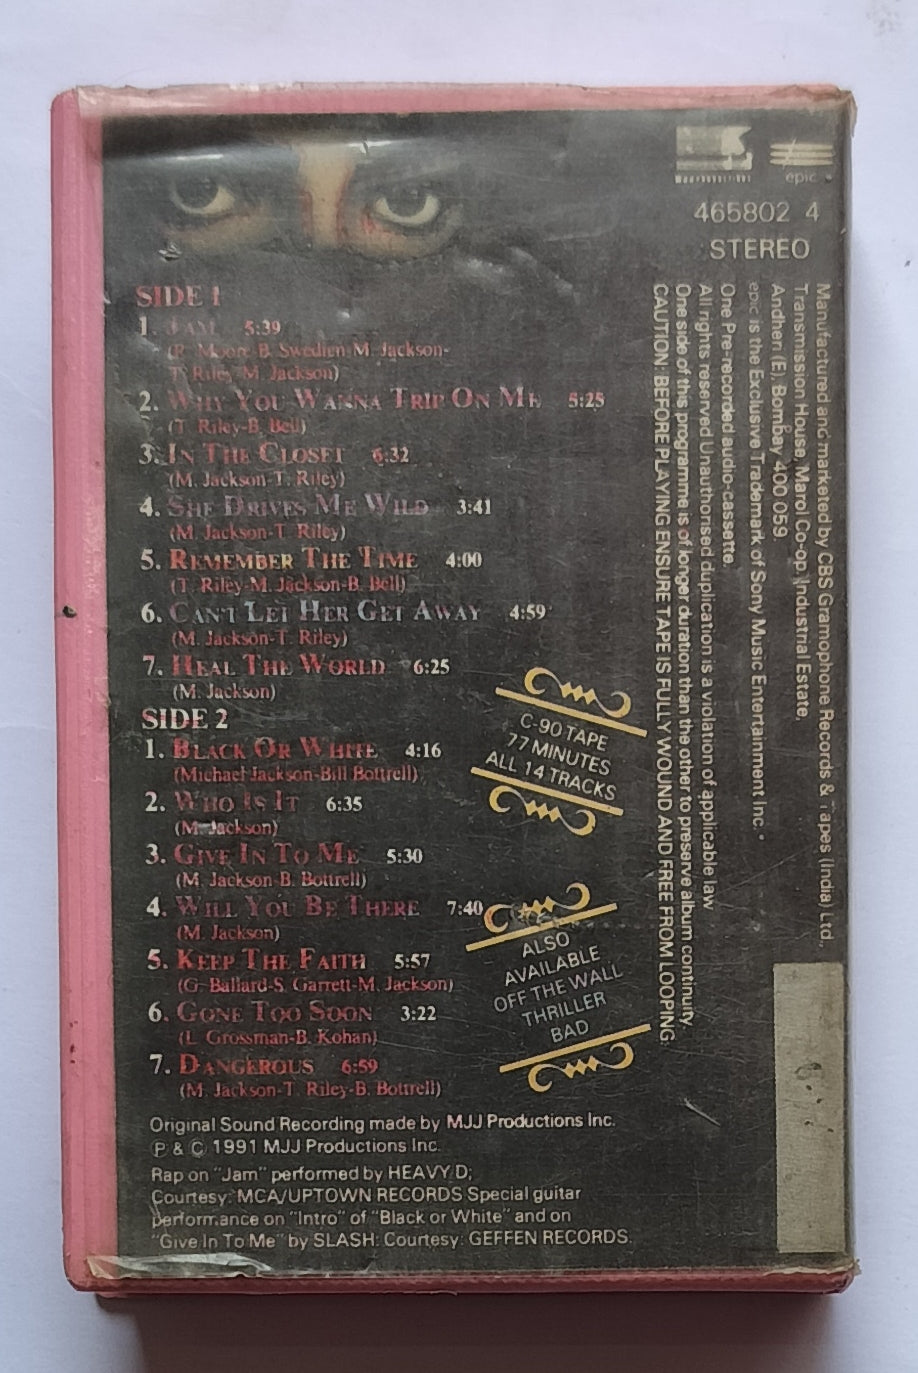 epic
465802 4
STEREO
SIDE 1
1. JAM 5:39
(R. Moore-B. Swedien-M. Jackson-
T. Riley-M. Jackson)
2. WHY YOU WANNA TRIP ON ME 5:25
(T. Riley-B. Bell)
3. IN THE CLOSET 6:32
(M. Jackson-T. Riley)
4. SHE DRIVES ME WILD 3:41
(M. Jackson-T. Riley)
5. REMEMBER THE TIME 4:00
(T. Riley-M. Jackson-B. Bell)
6. CAN'T LET HER GET AWAY 4:59
(M. Jackson-T. Riley)
7. HEAL THE WORLD 6:25
(M. Jackson)
SIDE 2
1. BLACK OR WHITE 4:16
(Michael Jackson-Bill Bottrell)
2. WHO IS IT 6:35
(M. Jackson)
3. GIVE IN TO ME 5:30
(M. Jackson-B. Bottrell)
4. WILL YOU BE THERE 7:40
(M. Jackson)
5. KEEP THE FAITH 5:57
(G. Ballard-S. Garrett-M. Jackson)
6. GONE TOO SOON 3:22
(L. Grossman-B. Kohan)
7. DANGEROUS 6:59
(M. Jackson-T. Riley-B. Bottrell)
C-90 TAPE
77 MINUTES
ALL 14 TRACKS
ALSO
AVAILABLE
OFF THE WALL
THRILLER
BAD
Manufactured and marketed by CBS Gramophone Records & Tapes (India) Ltd.,
Transmission House, Marol Co-op. Industrial Estate,
Andheri (E), Bombay 400 059.
epic is the Exclusive Trademark of Sony Music Entertainment Inc.
One Pre-recorded audio-cassette.
All rights reserved Unauthorised duplication is a violation of applicable law
One side of this programme is of longer duration than the other to preserve album continuity.
CAUTION: BEFORE PLAYING ENSURE TAPE IS FULLY WOUND AND FREE FROM LOOPING.
Original Sound Recording made by MJJ Productions Inc.
℗ & © 1991 MJJ Productions Inc.
Rap on "Jam" performed by HEAVY D;
Courtesy: MCA/UPTOWN RECORDS Special guitar
performance on "Intro" of "Black or White" and on
"Give In To Me" by SLASH: Courtesy: GEFFEN RECORDS.